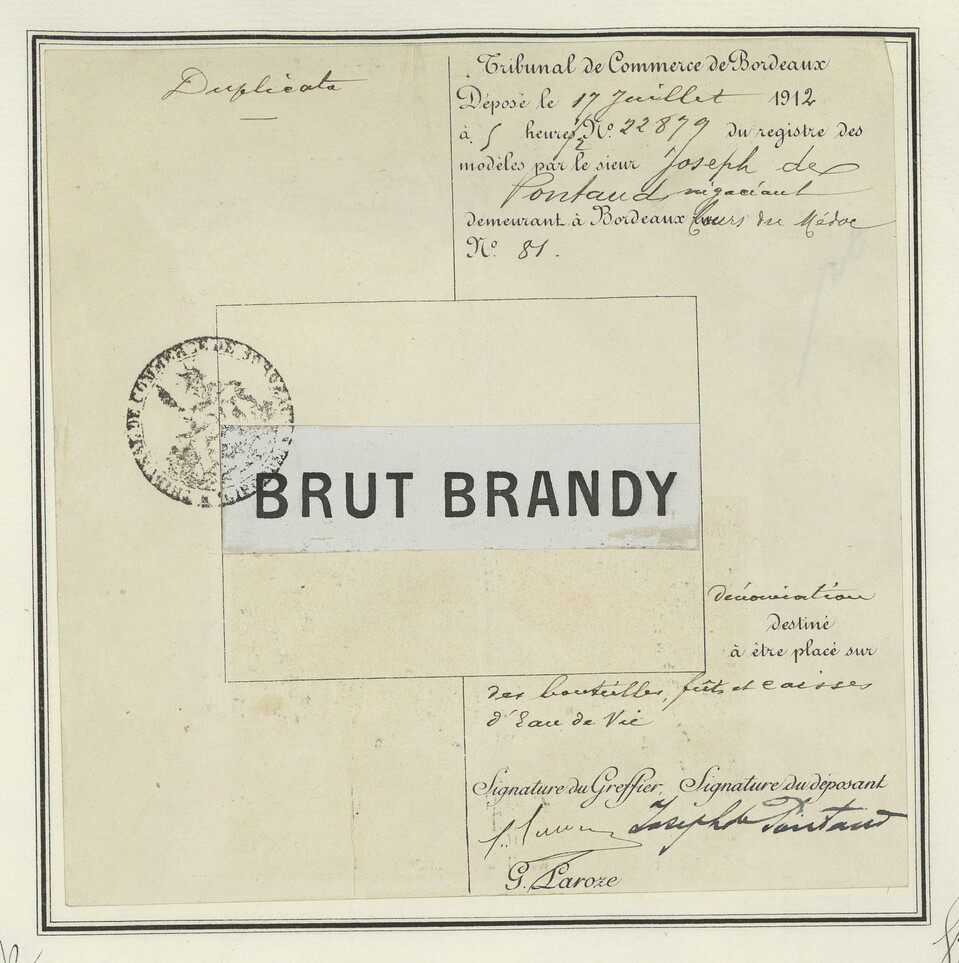 Duplicata
Tribunal de Commerce de Bordeaux
Déposé le 17 Juillet 1912
à 5 heures ½ No. 22879 du registre des
modèles par le sieur Joseph de
Pontaud négociant
demeurant à Bordeaux Cours du Médoc
No. 81.
TRIBUNAL DE COMMERCE DE BORDEAUX
BRUT BRANDY
dénomination
destiné
à être placé sur
des bouteilles, fûts et caisses
d'Eau de Vie
Signature du Greffier, Signature du déposant
Joseph de Pontaud
G. Laroze